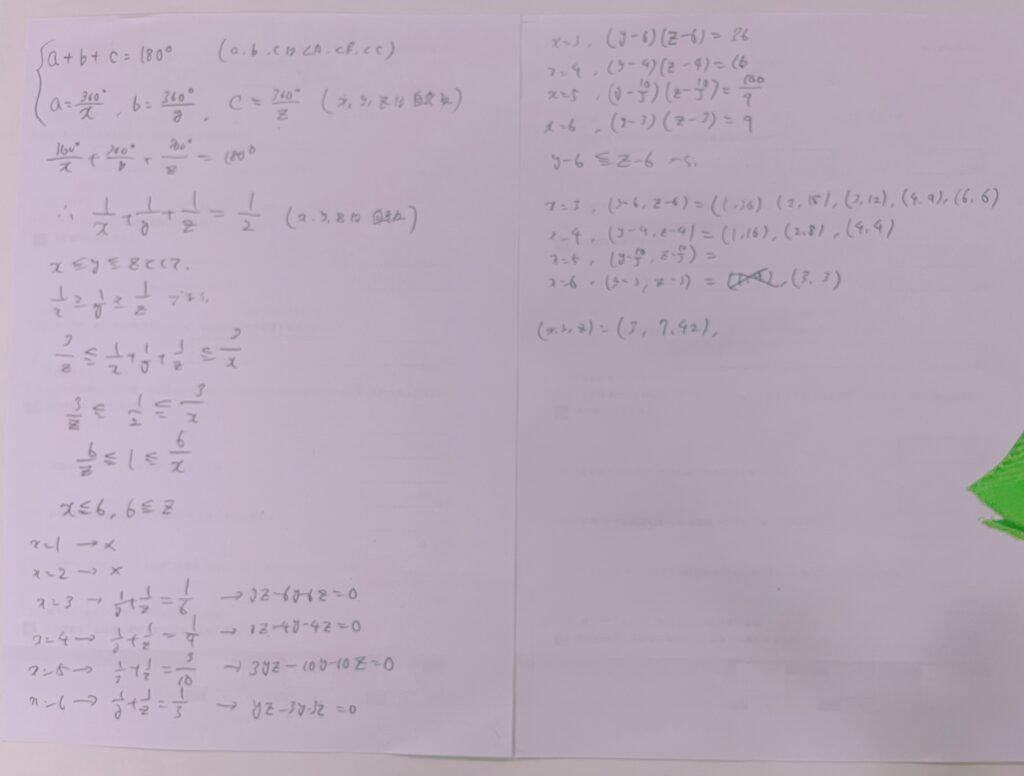 a+b+c=180° (a.b.cは∠A.∠B.∠C)
a=360°/x , b=360°/y , c=360°/z (x, y, zは自然数)
360°/x + 360°/y + 360°/z = 180°
∴ 1/x + 1/y + 1/z = 1/2 (x.y.zは自然数)
x≦y≦zとして.
1/x ≧ 1/y ≧ 1/z
3/z ≦ 1/x + 1/y + 1/z ≦ 3/x
3/z ≦ 1/2 ≦ 3/x
6/z ≦ 1 ≦ 6/x
x≦6, 6≦z
x=1 → ×
x=2 → ×
x=3 → 1/y + 1/z = 1/6 → yz-6y-6z=0
x=4 → 1/y + 1/z = 1/4 → yz-4y-4z=0
x=5 → 1/y + 1/z = 3/10 → 3yz-10y-10z=0
x=6 → 1/y + 1/z = 1/3 → yz-3y-3z=0
x=3, (y-6)(z-6)=36
x=4, (y-4)(z-4)=16
x=5, (y-10/3)(z-10/3)=100/9
x=6, (y-3)(z-3)=9
y-6≦z-6
x=3, (y-6, z-6)=(1,36) (2,18), (3,12), (4,9), (6,6)
x=4, (y-4, z-4)=(1,16), (2,8), (4,4)
x=5, (y-10/3, z-10/3)=
x=6, (y-3, z-3)= (3,3)
(x,y,z)=(3, 7,42),